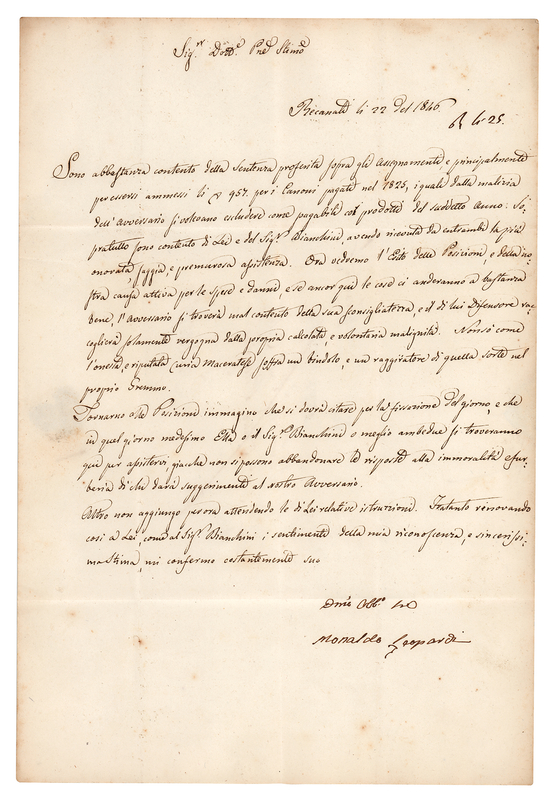 Sig.r Dott.e Pne Stimo
Recanati li 22 del 1846
li 25.
Sono abbastanza contento della Sentenza proferita sopra gli Assegnamenti e principalmente
per essersi ammessi li 957. per i Canoni pagati nel 1825, i quali dalla malizia
dell'Avversario si voleano escludere come pagabili coi prodotti del suddetto Anno. So-
pratutto sono contento di Lei e del Sig.r Bianchini, avendo ricevuta da entrambi la più
onorata, saggia, e premurosa assistenza. Ora vedremo l'Esito delle Posizioni, e della no-
stra causa attiva per le spese e danni, e se ancor qui le cose ci anderanno a bastanza
bene, l'Avversario si troverà mal contento della sua sconsigliatezza, e il di lui Difensore rac-
coglierà solamente vergogna dalla propria calcolata, e volontaria malignità. Non so come
l'onesta, e riputata Curia Maceratese soffra un bindolo, e un raggiratore di quella sorte nel
proprio Gremmo.
Tornando alle Posizioni immagino che si dovrà citare per la fissazione del giorno, e che
in quel giorno medesimo Ella o il Sig.r Bianchini o meglio ambedue si troveranno
qui per assistervi giacchè non si possono abbandonare le risposte alla immoralità e fur-
beria di chi darà suggerimenti al nostro Avversario.
Altro non aggiungo per ora attendendo le di Lei relative istruzioni. Frattanto rinnovando
così a Lei, come al Sig.r Bianchini i sentimenti della mia riconoscenza, e sincerissi-
ma Stima, mi confermo costantemente suo
Dmo Obb.o Sre
Monaldo Leopardi